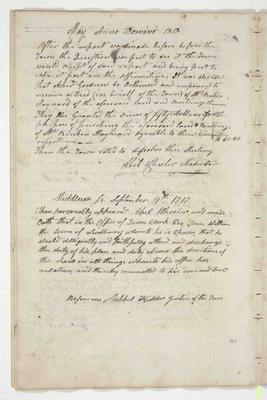 May Anno Domini 1818
After the report was made before before the
Town the Question was put to see if the Town
would accept of said report and being put to
vote it past in the affirmative. It was voted
that
receive a Deed (in behalf of the Town) of Mr Reuben
Maynard of the aforesaid land and Buildings
They also granted the sum of fifty dollars for the
purpose of purchasing the aforesaid land & Buildings
of Mr Reuben Maynard agreeable to their
report
Then the Town voted to dissolve this Meeting
Abel Wheeler Moderator
Middlesex Ss September 9th 1818
Then personally appeared Abel Wheeler and made
Oath that in the Office of Town Clerk for Town within
the Town of Sudbury whereto he is chosen that he
would diligently and faithfully attend and discharge
the duty of his place and duly observe the direction of
the Laws in all things whereto his office has
relation and thereby committed to his care and trust
Before me Ashbel Kidder Justice of the Peace